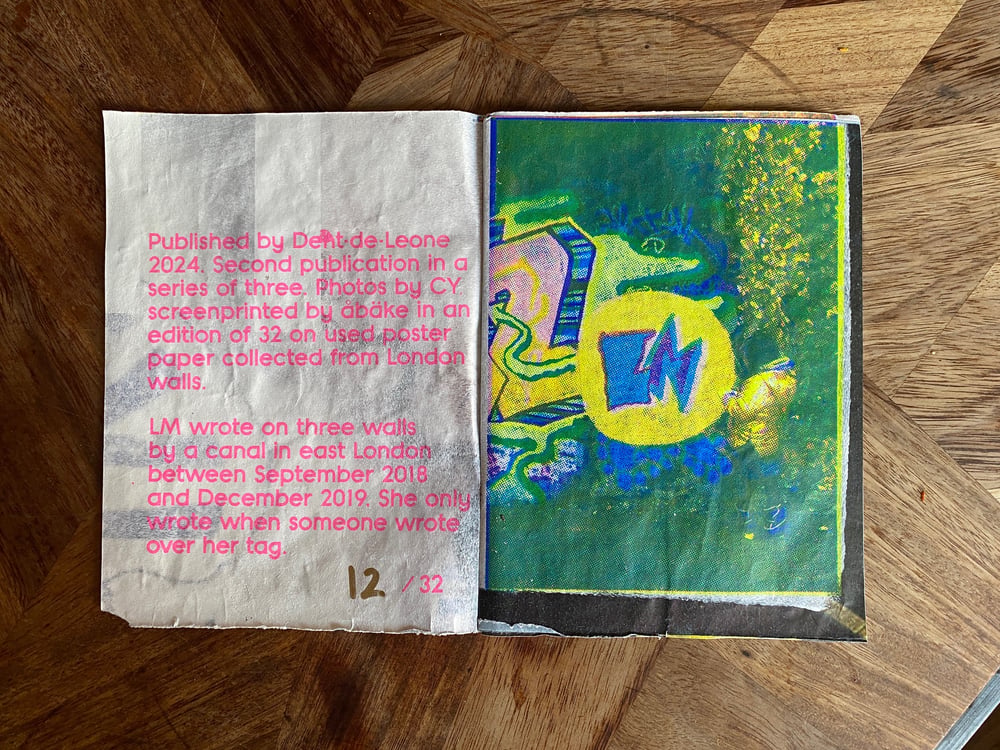 Published by Dent-de-Leone
2024. Second publication in a
series of three. Photos by CY.
screenprinted by åbäke in an
edition of 32 on used poster
paper collected from London
walls.
LM wrote on three walls
by a canal in east London
between September 2018
and December 2019. She only
wrote when someone wrote
over her tag.
12 / 32
LM